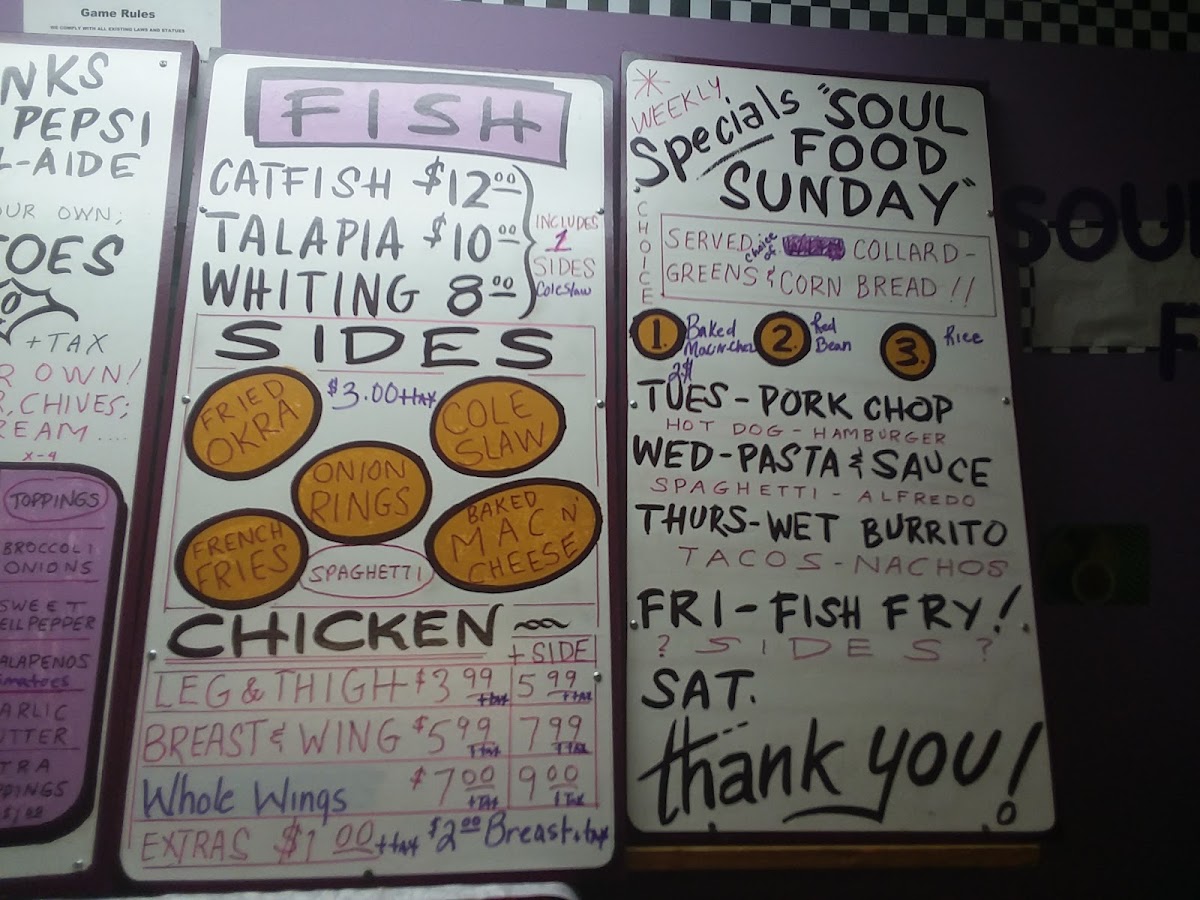 Game Rules
WE COMPLY WITH ALL EXISTING LAWS AND STATUES
NKS
PEPSI
L-AIDE
OUR OWN;
TOES
+TAX
R OWN!
R, CHIVES;
REAM....
X-9
TOPPINGS
BROCCOLI
ONIONS
SWEET
ELL PEPPER
ALAPENOS
omatoes
ARLIC
UTTER
TRA
PPINGS
FISH
CATFISH $12.00
TALAPIA $10.00
WHITING 8.00
INCLUDES
1
SIDES
Coleslaw
SIDES
$3.00+tax
FRIED
OKRA
COLE
SLAW
ONION
RINGS
FRENCH
FRIES
SPAGHETTI
BAKED
MAC N'
CHEESE
CHICKEN
+ SIDE
LEG & THIGH $3.99 +tax 5.99 +tax
BREAST & WING $5.99 +tax 7.99 +tax
Whole Wings $7.00 +tax 9.00 +tax
EXTRAS $1.00 +tax $2.00 Breast +tax
WEEKLY
Specials "SOUL
FOOD
SUNDAY"
CHOICE
SERVED choice of COLLARD-
GREENS & CORN BREAD!!
1. Baked
2. Red
Bean
3. Rice
TUES - PORK CHOP
HOT DOG - HAMBURGER
WED - PASTA & SAUCE
SPAGHETTI - ALFREDO
THURS - WET BURRITO
TACOS - NACHOS
FRI - FISH FRY!
? SIDES ?
SAT.
thank you!
SOUL
F